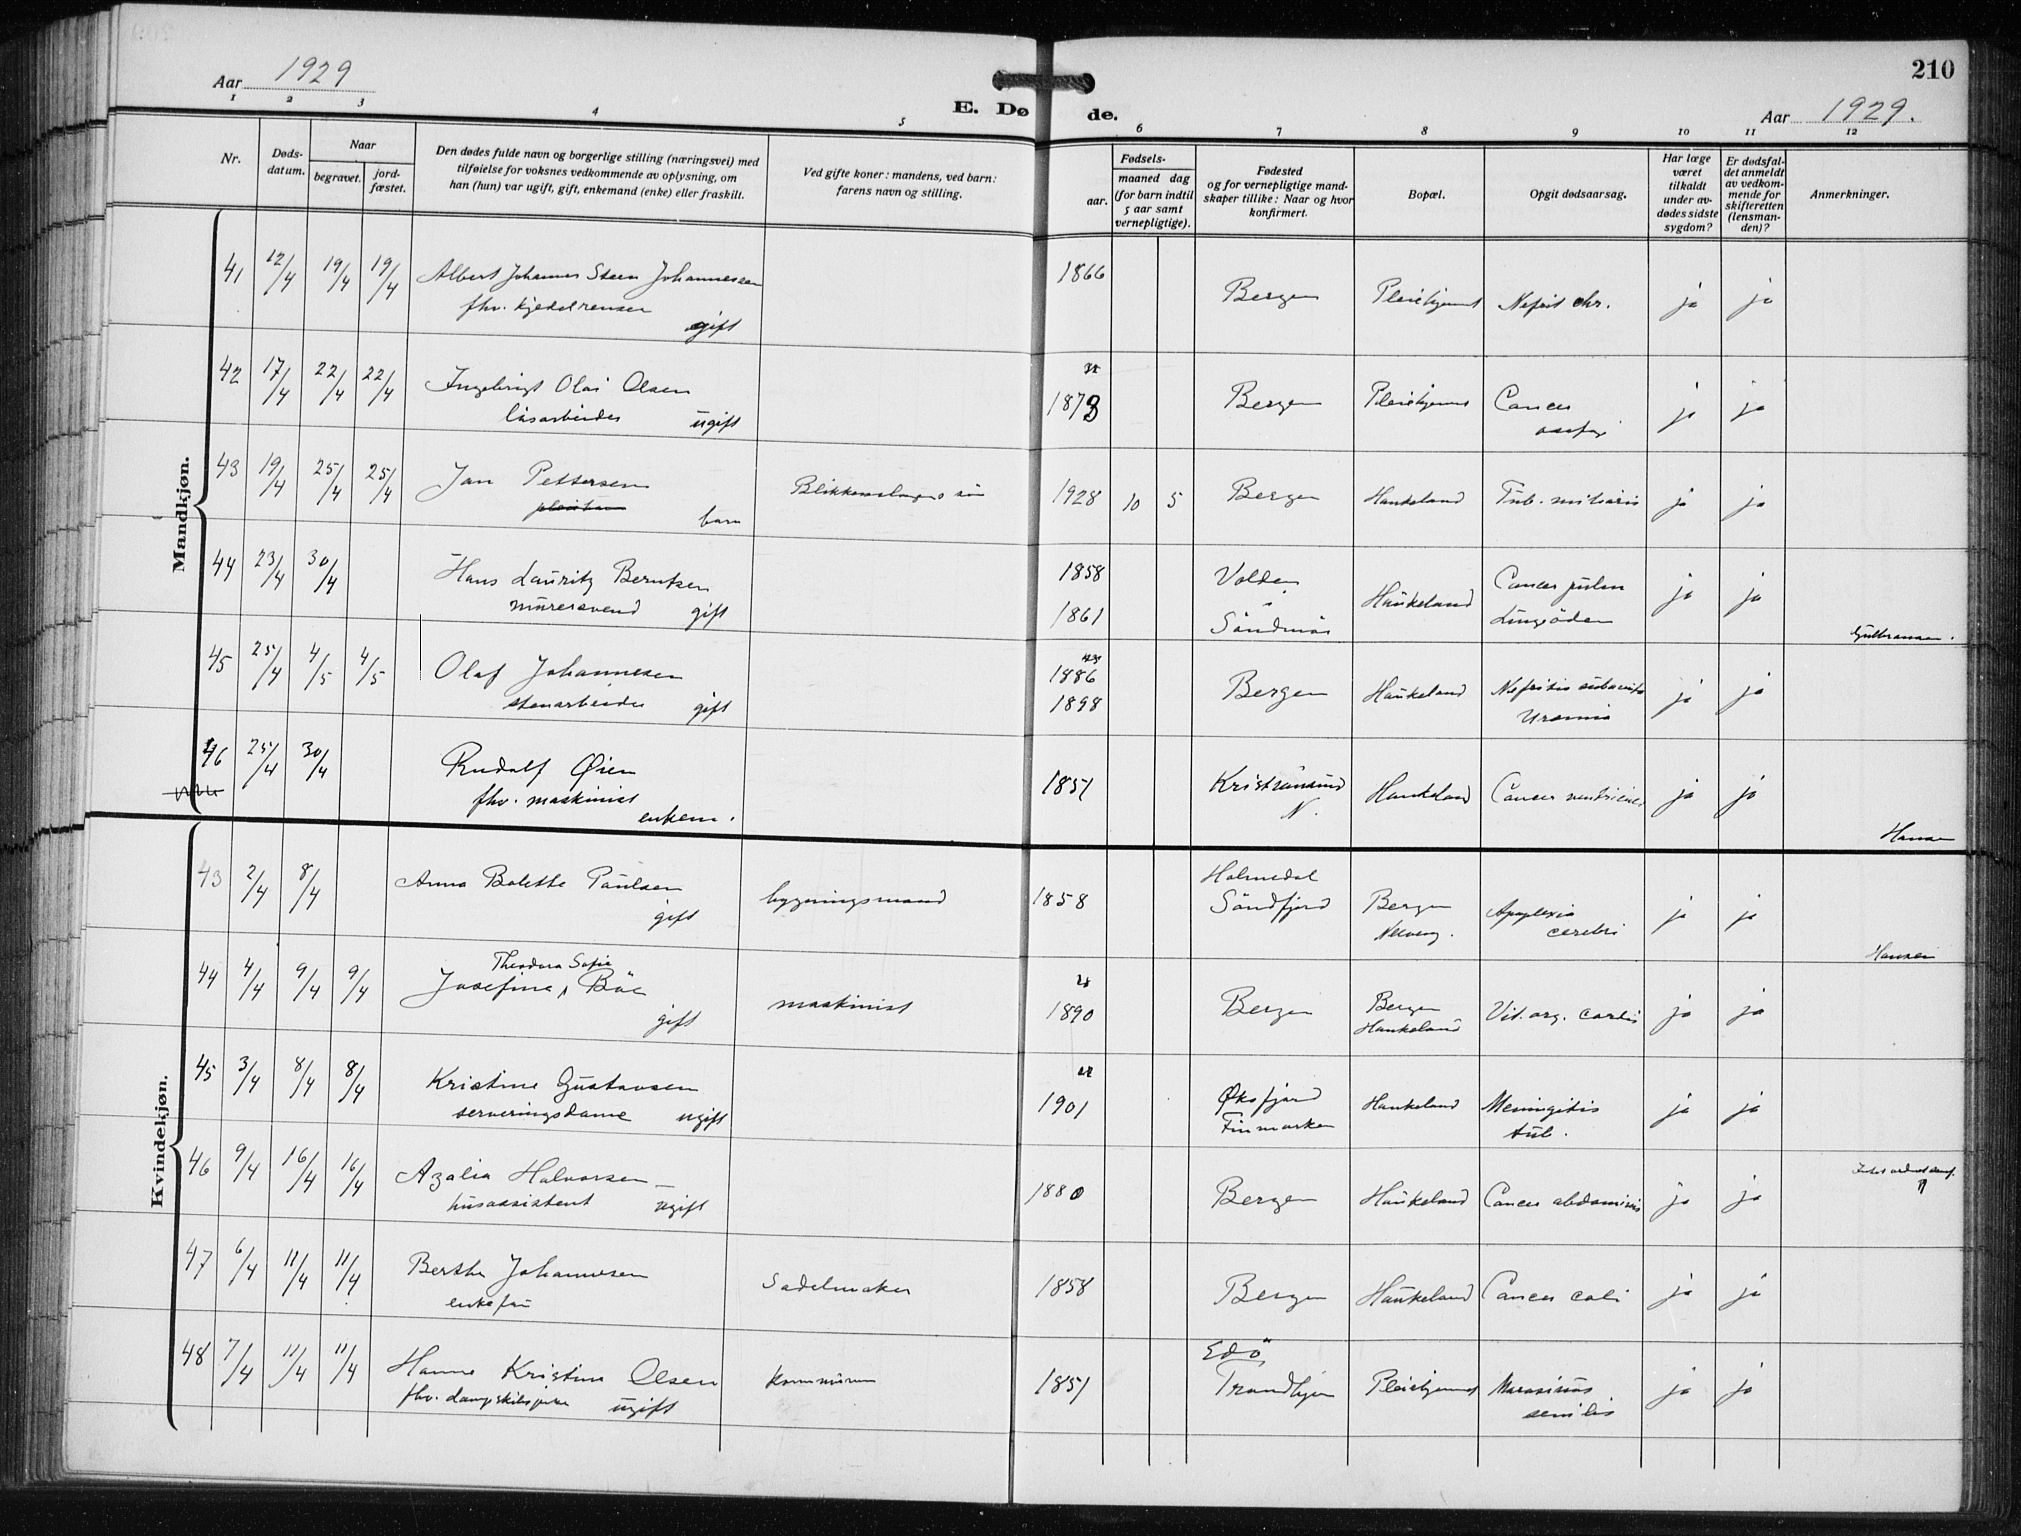 Aar 1929
E. Døde.
210
Aar 1929.
1 2 3 4 5 6 7 8 9 10 11 12
Nr.
Døds-
datum.
Naar
begravet.
jord-
fæstet.
Den dødes fulde navn og borgerlige stilling (næringsvei) med
tilføielse for voksnes vedkommende av oplysning, om
han (hun) var ugift, gift, enkemand (enke) eller fraskilt.
Ved gifte koner: mandens, ved barn:
farens navn og stilling.
Fødsels-
aar.
maaned dag
(for barn indtil
5 aar samt
vernepligtige).
Fødested
og for vernepligtige mand-
skaper tillike: Naar og hvor
konfirmert.
Bopæl.
Opgit dødsaarsag.
Har læge
været
tilkaldt
under av-
dødes sidste
sygdom?
Er dødsfal-
det anmeldt
av vedkom-
mende for
skifteretten
(lensman-
den)?
Anmerkninger.
Mandkjøn.
41 12/4 19/4 19/4 Albert Johannes Steen Johannessen 1866 Bergen Pleiehjemmet Nefrit chr. ja ja
fhv. kjedelrenser
ugift
42 17/4 22/4 22/4 Ingebrigt Olai Olsen 1873 Bergen Pleiehjemmet Cancer ja ja
løsarbeider ugift
43 19/4 25/4 25/4 Jan Pettersen Blikkenslager 1928 10 5 Bergen Haukeland Tub. miliaris ja ja
barn
44 23/4 30/4 Hans Lauritz Berntsen 1858 Volden Haukeland Cancer pulm ja ja
mursvend gift 1861 Söndmör Lungeödem
45 25/4 4/5 4/5 Olaf Johannesen 1886 Bergen Haukeland Nefritis subacuta ja ja
stenarbeider gift 1898 Uremia
46 25/4 30/4 Rudolf Øien 1851 Kristiansund Haukeland Cancer ventriculi ja ja
fhv. maskinist N.
enkem. Hansen
Kvindekjøn.
43 2/4 8/4 Anna Bolette Paulsen bygningsmand 1858 Holmedal
Söndfjord Bergen Apoplexia ja ja
gift cerebri
Hansen
44 4/4 9/4 9/4 Theodora Sofie
Josefine Böe maskinist 1890 Bergen Bergen Vit. org. cordis ja ja
gift Haukeland
45 3/4 8/4 8/4 Kristine Gustavsen 1901 Øksfjord Haukeland Meningitis ja ja
serveringsdame ugift Finmarken tub.
46 9/4 16/4 16/4 Azalia Halvorsen 1880 Bergen Haukeland Cancer abdominis ja ja
husassistent ugift
47 6/4 11/4 11/4 Berthe Johannesen Sadelmaker 1858 Bergen Haukeland Cancer coli ja ja
enkefru
48 7/4 11/4 11/4 Hanne Kristine Olsen kommunen 1851 Edö
Trondhjem Pleiehjemmet Marasmus ja ja
fhv. dampskibspike ugift senilis